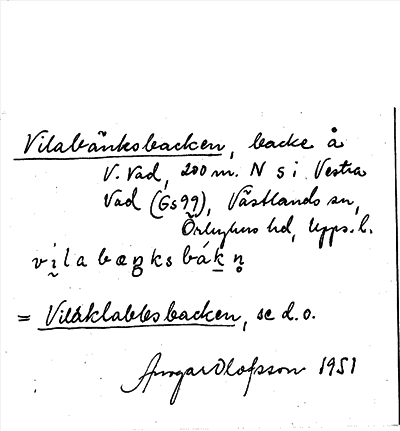 Vilabänksbacken, backe å
V. Vad, 200 m. N s i Vestra
Vad (Gs 99), Västlands sn,
Örbyhus hd, Upps. l.
vi̭la bæŋksbák̠n̥
= Vilaklabbsbacken, se d.o.
Ansgar Olofsson 1951